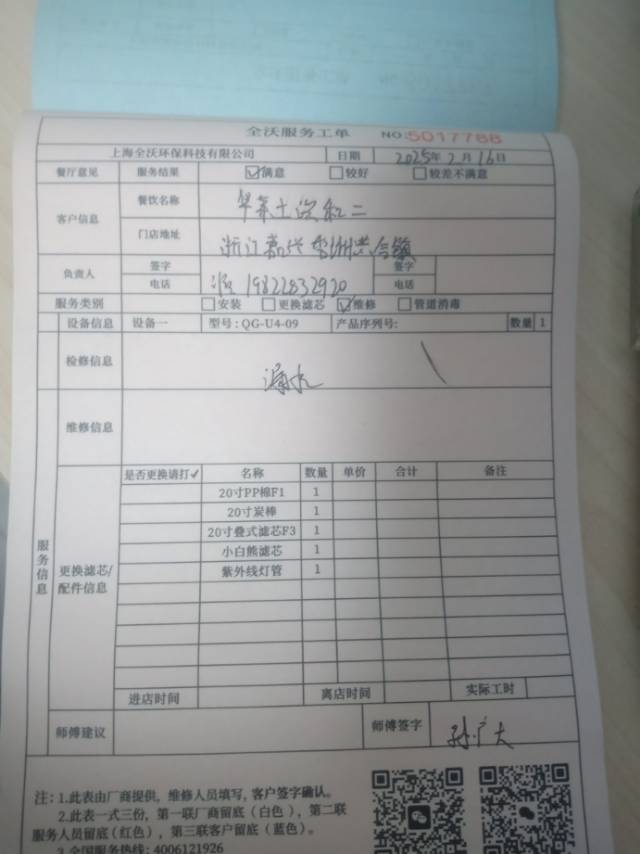 全沃服务工单 NO:5017788
上海全沃环保科技有限公司 日期 2025年2月16日
餐厅意见 服务结果 ☑满意 □较好 □较差不满意
客户信息 餐饮名称
门店地址 浙江嘉兴
负责人 签字 签字
电话 19822832920 电话
服务类别 □安装 □更换滤芯 ☑维修 □管道消毒
设备信息 设备一 型号:QG-U4-09 产品序列号: 数量 1
检修信息 漏水
维修信息
服务信息
更换滤芯/配件信息
是否更换请打✓ 名称 数量 单价 合计 备注
20寸PP棉F1 1
20寸炭棒 1
20寸叠式滤芯F3 1
小白熊滤芯 1
紫外线灯管 1
进店时间 离店时间 实际工时
师傅建议 师傅签字 孙广大
注:1.此表由厂商提供,维修人员填写,客户签字确认。
2.此表一式三份,第一联厂商留底(白色),第二联
服务人员留底(红色),第三联客户留底(蓝色)。
3.全国服务热线:4006121926